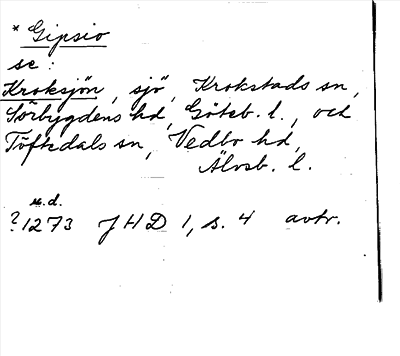 * Gipsio
se:
Kroksjön, sjö, Krokstads sn,
Sörbygdens hd, Göteb. l., och
Töftedals sn, Vedbo hd,
Älvsb. l.
u.d.
?1273 JHD 1, s. 4 avtr.